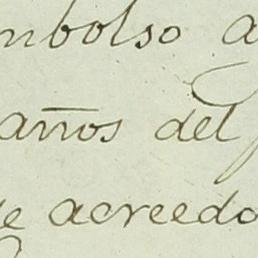 mbolso a
años del
de acreedo